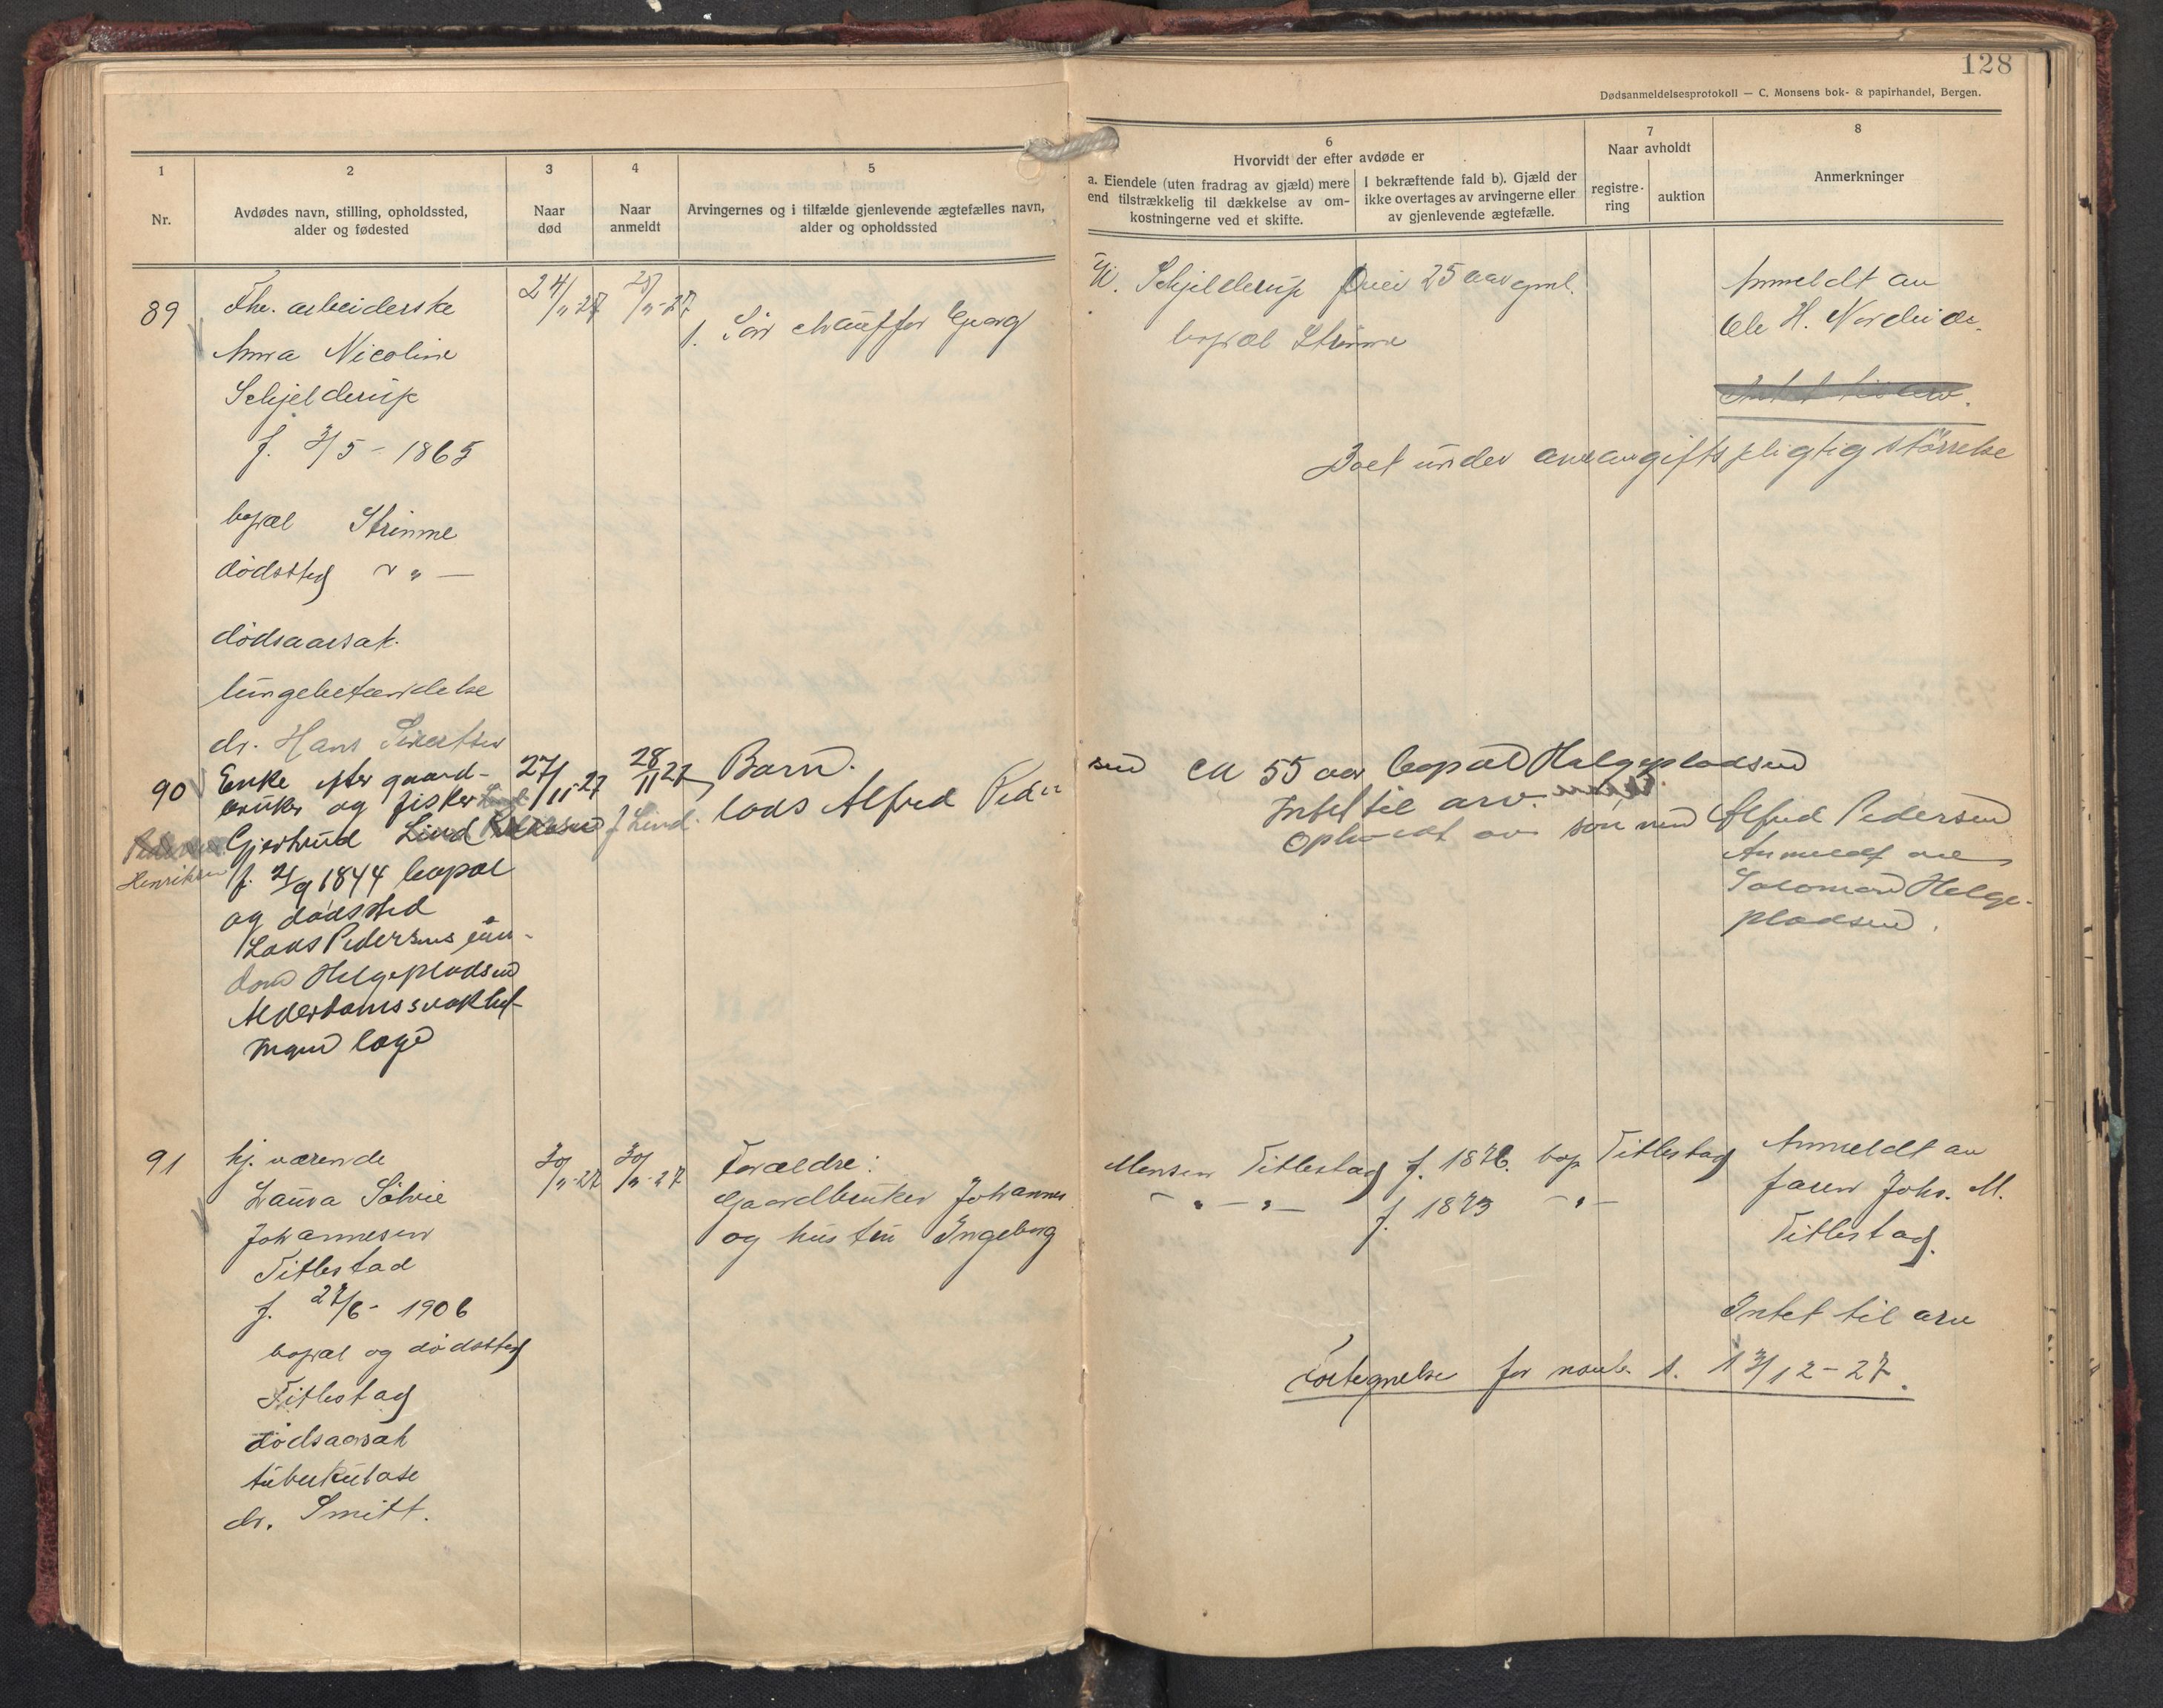 128
Dødsanmeldelsesprotokoll — C. Monsens bok- & papirhandel, Bergen.
1
Nr.
2
Avdødes navn, stilling, opholdssted,
alder og fødested
3
Naar
død
4
Naar
anmeldt
5
Arvingernes og i tilfælde gjenlevende ægtefælles navn,
alder og opholdssted
6
Hvorvidt der efter avdøde er
a. Eiendele (uten fradrag av gjæld) mere
end tilstrækkelig til dækkelse av om-
kostningerne ved et skifte.
I bekræftende fald b). Gjæld der
ikke overtages av arvingerne eller
av gjenlevende ægtefælle.
7
Naar avholdt
registre-
ring
auktion
8
Anmerkninger
89
Fhv. arbeiderske
Anna Nicoline
Schjelderup
f. 3/5 - 1865
bopæl Strinme
dødssted
dødsaarsak.
lungebetændelse
dr. Hans Sivertsen
24/11-27
25/11-27
1. Søn chauffør Georg
W. Schjelderup 25 aar gml.
bopæl Strinme
Anmeldt av
Ole H. Nordeide.
Intet til arv.
Boet under arveavgiftspligtig størrelse
90
Enke efter gaard-
bruker og fisker
Gjertrud Lind Pedersen f Lind.
Henriksen
f. 2/9 1844 bopæl
og dødssted
Lars Pedersens eien-
dom Helgepladsen
Alderdomssvakhet
Ingen læge
27/11-27
28/11 27
Barn.
Lars Alfred Peder
sen ca 55 aar bopæl Helgepladsen
Intet til arv.
Opholdt av sønnen Alfred Pedersen
Anmeldt av
Salomon Helge-
pladsen.
91
hj. værende
Laura Sølvie
Johannesen
Titlestad
f. 27/6 - 1906
bopæl og dødssted
Titlestad
dødsaarsak
tuberkulose
dr. Smitt.
30/11-27
30/11-27
Forældre:
Gaardbruker Johannes
og hustru Ingeborg
Monsen Titlestad f. 1876. bop Titlestad
— " — " — f. 1873 — " —
Anmeldt av
faren Johs. M.
Titlestad.
Intet til arv
Fortegnelse for novbr. s. 13/12-27.